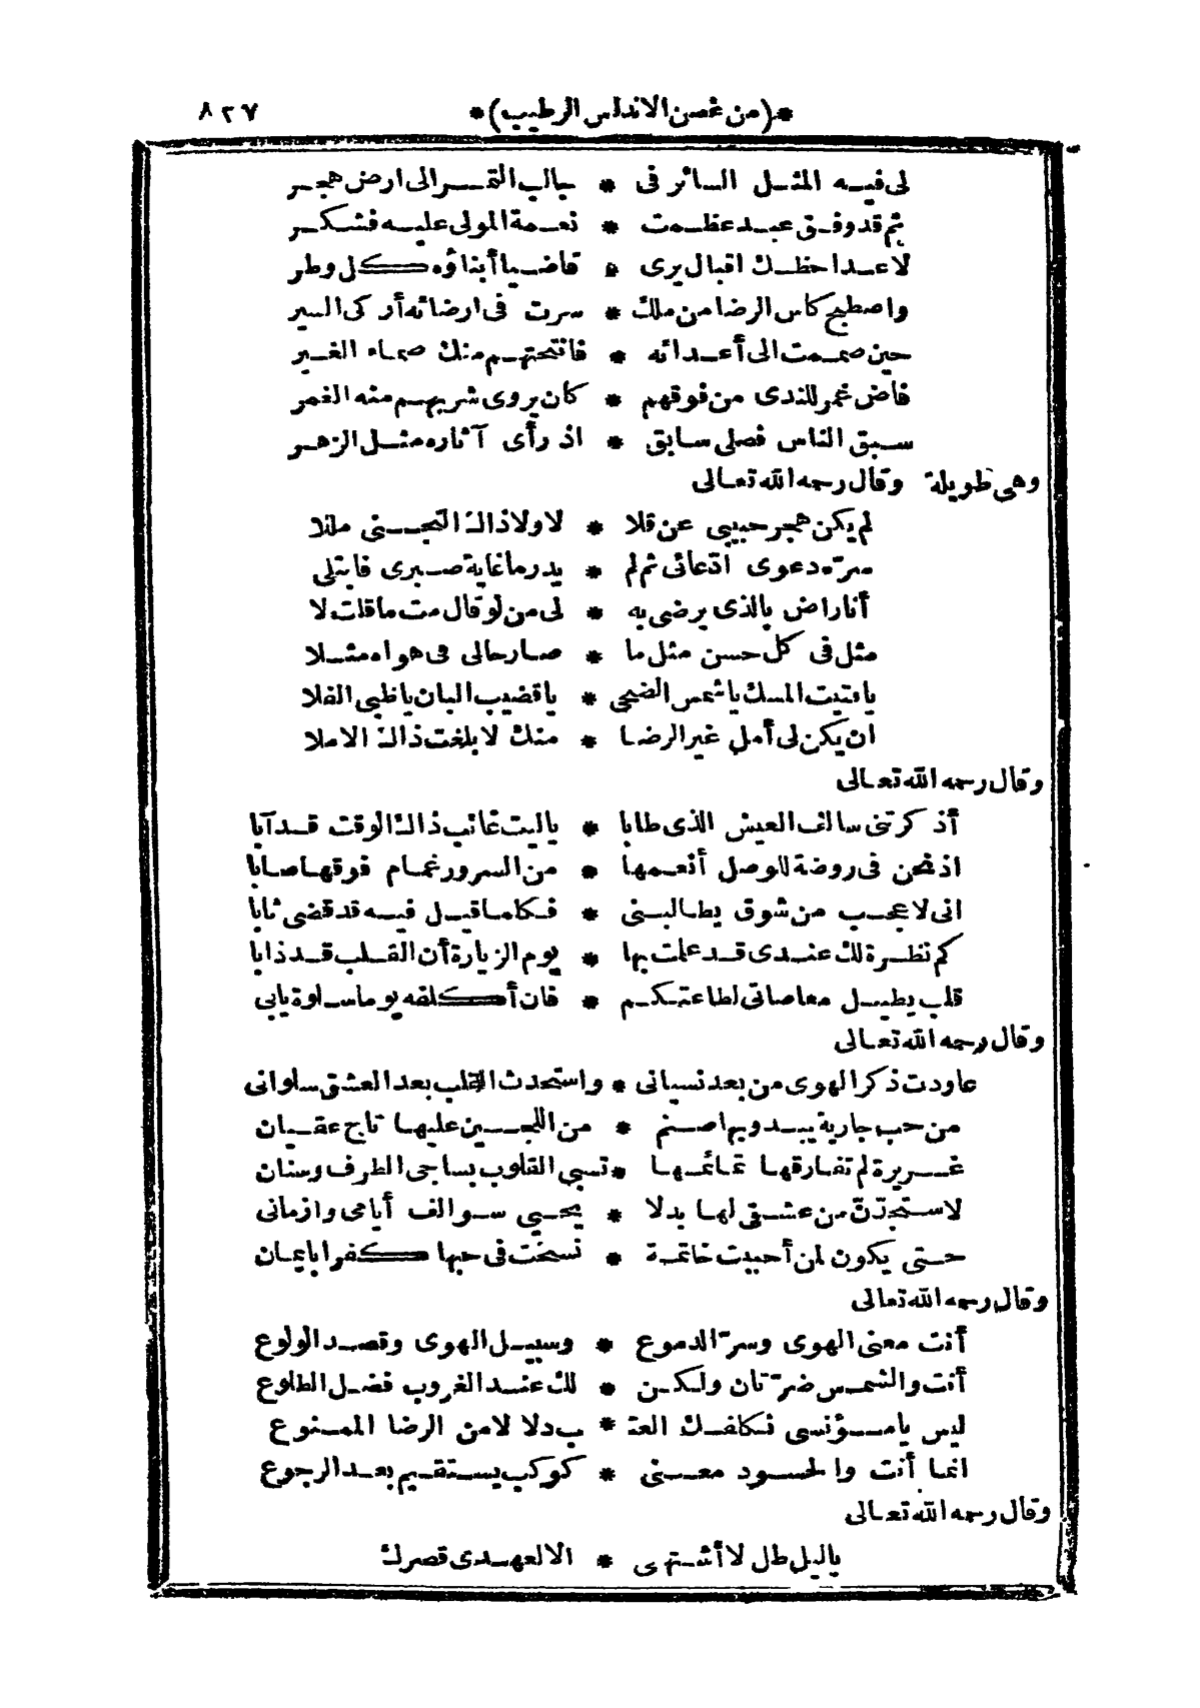 *(من غصن الاندلس الرطيب)* ٨٢٧
لى فيه المثل السائر فى * جالب التمر الى ارض هجر
ثم قد وفق عبد عظمت * نعمة المولى عليه فشكر
لا عدا حظك اقبال يرى * قاضيا أبناؤه كل وطر
واصطبح كاس الرضا من ملك * سرت فى ارضائه أزكى السير
حين صممت الى أعدائه * فانتحتهم منك صماء الغير
فاض غمر للندى من فوقهم * كان يروى شربهم منه الغمر
سبق الناس فصلى سابق * اذ رأى آثاره مثل الزهر
وهى طويلة وقال رحمه الله تعالى
لم يكن هجر حبيبى عن قلا * لا ولا ذاك التجنى مللا
سره دعوى ادعائى ثم لم * يدر ما غاية صبرى فابتلى
أنا راض بالذى يرضى به * لى من لو قال مت ما قلت لا
مثل فى كل حسن مثل ما * صار حالى فى هواه مثلا
يا فتيت المسك يا شمس الضحى * يا قضيب البان يا ظبى الفلا
ان يكن لى أمل غير الرضا * منك لا بلغت ذاك الاملا
وقال رحمه الله تعالى
أذكرتنى سالف العيش الذى طابا * ياليت غائب ذاك الوقت قد آبا
اذ نحن فى روضة للوصل أنعمها * من السرور غمام فوقها صابا
انى لاعجب من شوق يطالبنى * فكلما قيل فيه قد قضى ثابا
كم نظرة لك عندى قد علمت بها * يوم الزيارة أن القلب قد ذابا
قلب يطيل معاصاتى لطاعتكم * فان أكلفه يوما سلوة يابى
وقال رحمه الله تعالى
عاودت ذكر الهوى من بعد نسيانى * واستحدث القلب بعد العشق سلوانى
من حب جارية يبدو بها صنم * من اللجين عليها تاج عقيان
غريرة لم تفارقها تمائمها * تسبى القلوب بساجى الطرف وسنان
لاستجدن من عشقى لها بدلا * يحيى سوالف أيامى وازمانى
حتى يكون لمن أحببت خاتمة * نسخت فى حبها كفرا بايمان
وقال رحمه الله تعالى
أنت معنى الهوى وسر الدموع * وسبيل الهوى وقصد الولوع
أنت والشمس ضرتان ولكن * لك عند الغروب فضل الطلوع
ليس يا مؤنسى نكلفك العتـ * ـب دلالا من الرضا الممنوع
انما أنت والحسود معنى * كوكب يستقيم بعد الرجوع
وقال رحمه الله تعالى
ياليل طل لا أشتهى * الا لعهدى قصرك